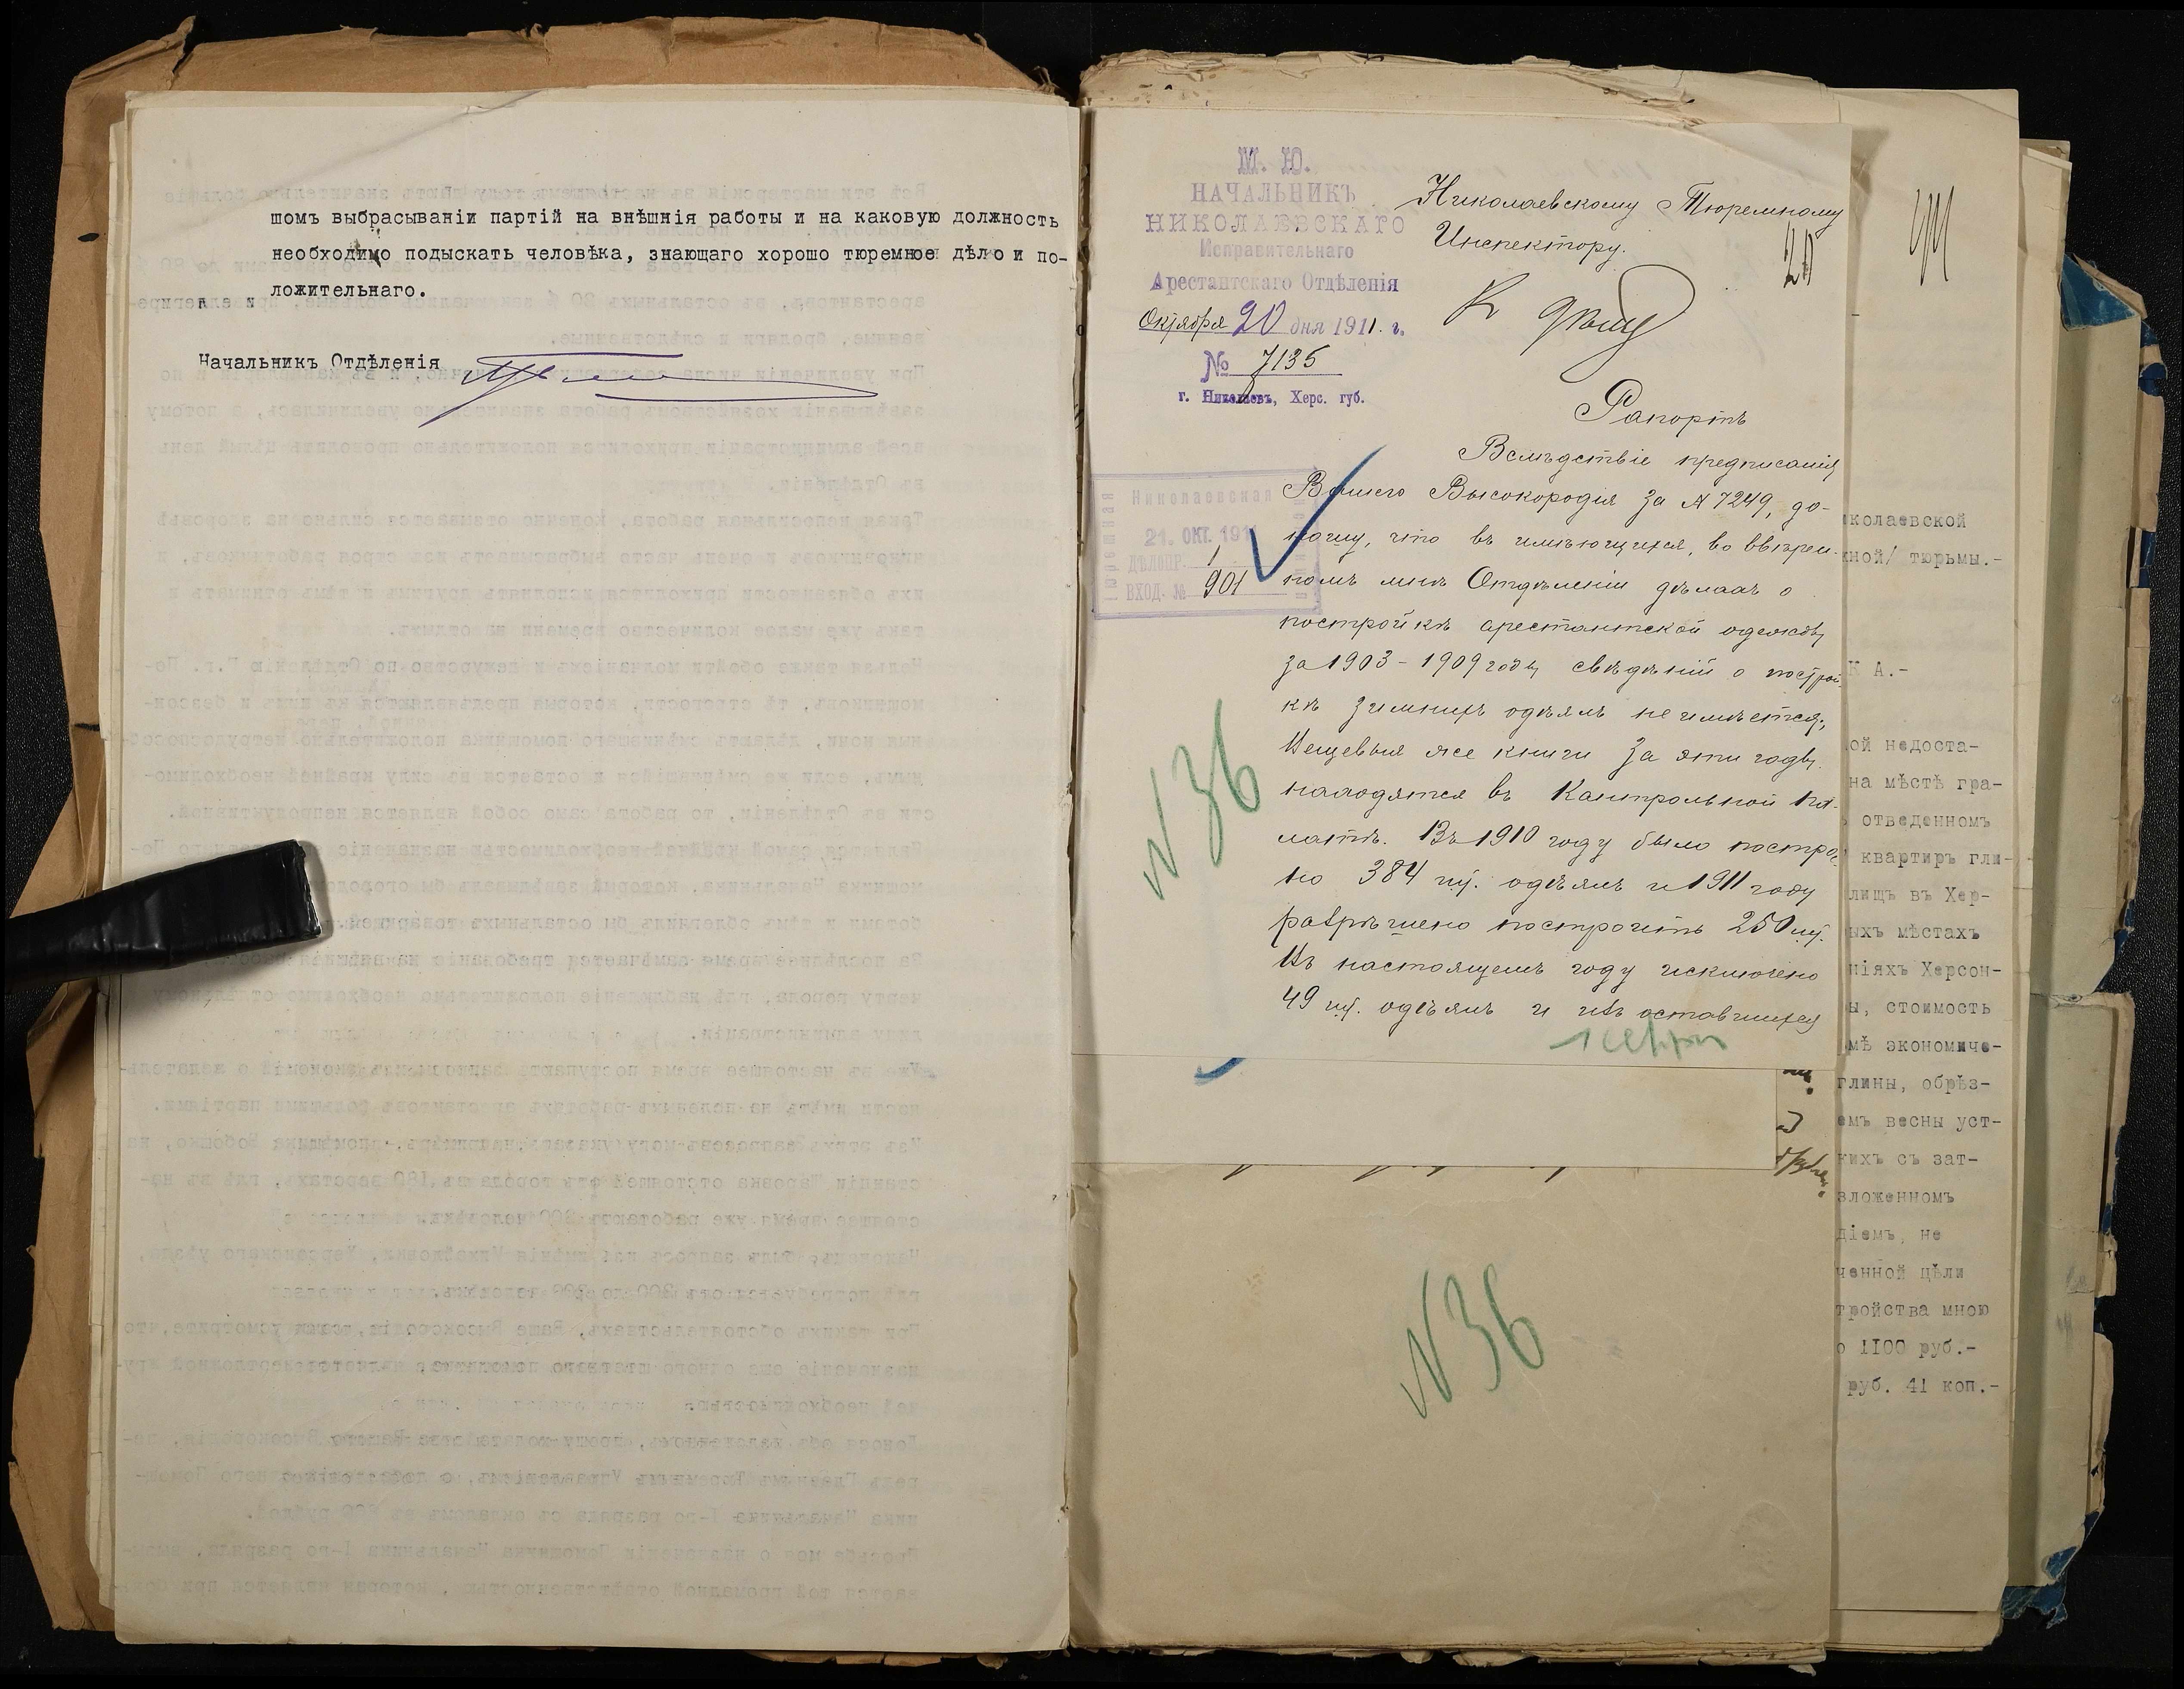 шомъ выбрасываніи партій на внѣшнія работы и на каковую должность
необходимо подыскать человѣка, знающаго хорошо тюремное дѣло и по-
ложительнаго.
Начальникъ Отдѣленія
М. Ю.
НАЧАЛЬНИКЪ
НИКОЛАЕВСКАГО
Исправительнаго
Арестантскаго Отдѣленія
Октября 20 дня 1911. г.
№ 7135
г. Николаевъ, Херс. губ.
Николаевскому Тюремному
Инспектору.
К дѣлу
Рапортъ
Николаевская
21. ОКТ. 191
ДѢЛОПР. 1
ВХОД. № 901
Вслѣдствіе предписанія
Вашего Высокородія за № 7249, до-
ношу, что въ имѣющихся, во ввѣрен-
номъ мнѣ Отдѣленіи дѣлахъ о
постройкѣ арестантской одежды
за 1903-1909 годы свѣдѣній о построй-
кѣ зимнихъ одѣялъ не имѣется;
Вещевыя же книги за эти годы
находятся въ Контрольной Па-
латѣ. Въ 1910 году было построе-
но 384 шт. одѣялъ и 1911 году
разрѣшено построить 250 шт.
Въ настоящемъ году исключено
49 шт. одѣялъ и изъ оставшихся
N 36
N 36
иколаевской
ной/ тюрьмы.-
К А.-
ой недоста-
на мѣстѣ гра-
отведенномъ
квартиръ гли-
лищъ въ Хер-
ыхъ мѣстахъ
ніяхъ Херсон-
ы, стоимость
мѣ экономиче-
глины, обрѣз-
емъ весны уст-
кихъ съ зат-
зложенномъ
діемъ, не
ченной цѣли
тройства мною
о 1100 руб.-
руб. 41 коп.-